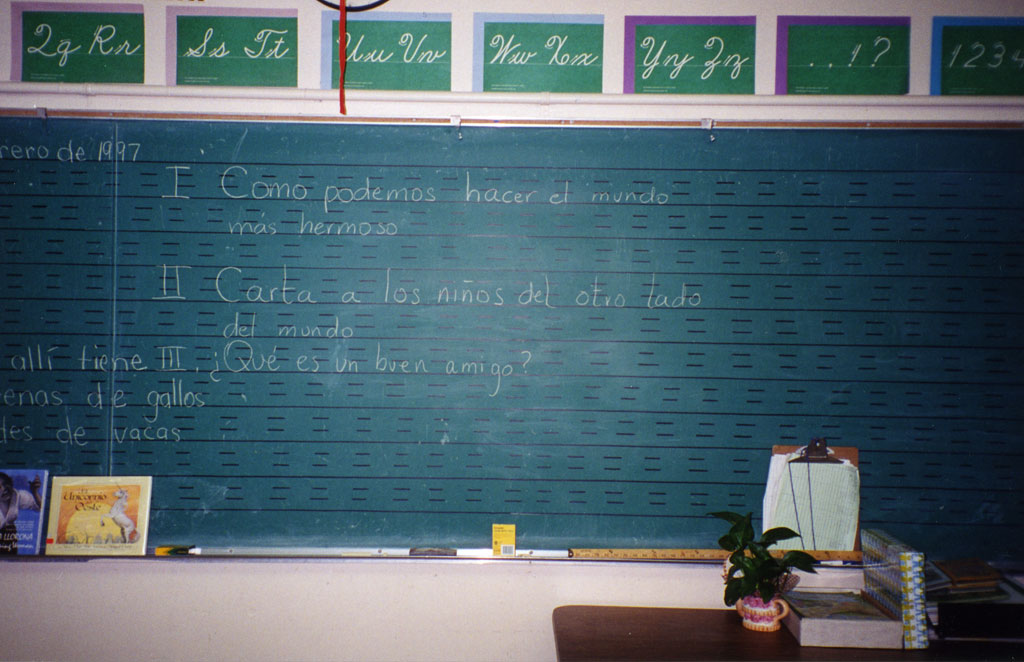 Qq Rr
Ss Tt
Uu Vv
Ww Xx
Yy Zz
. , ! ?
1 2 3 4
rero de 1997
I Como podemos hacer el mundo
más hermoso
II Carta a los niños del otro lado
del mundo
allí tiene III. ¿Qué es un buen amigo?
enas de gallos
des de vacas
Unicornio
Oeste
LLORONA